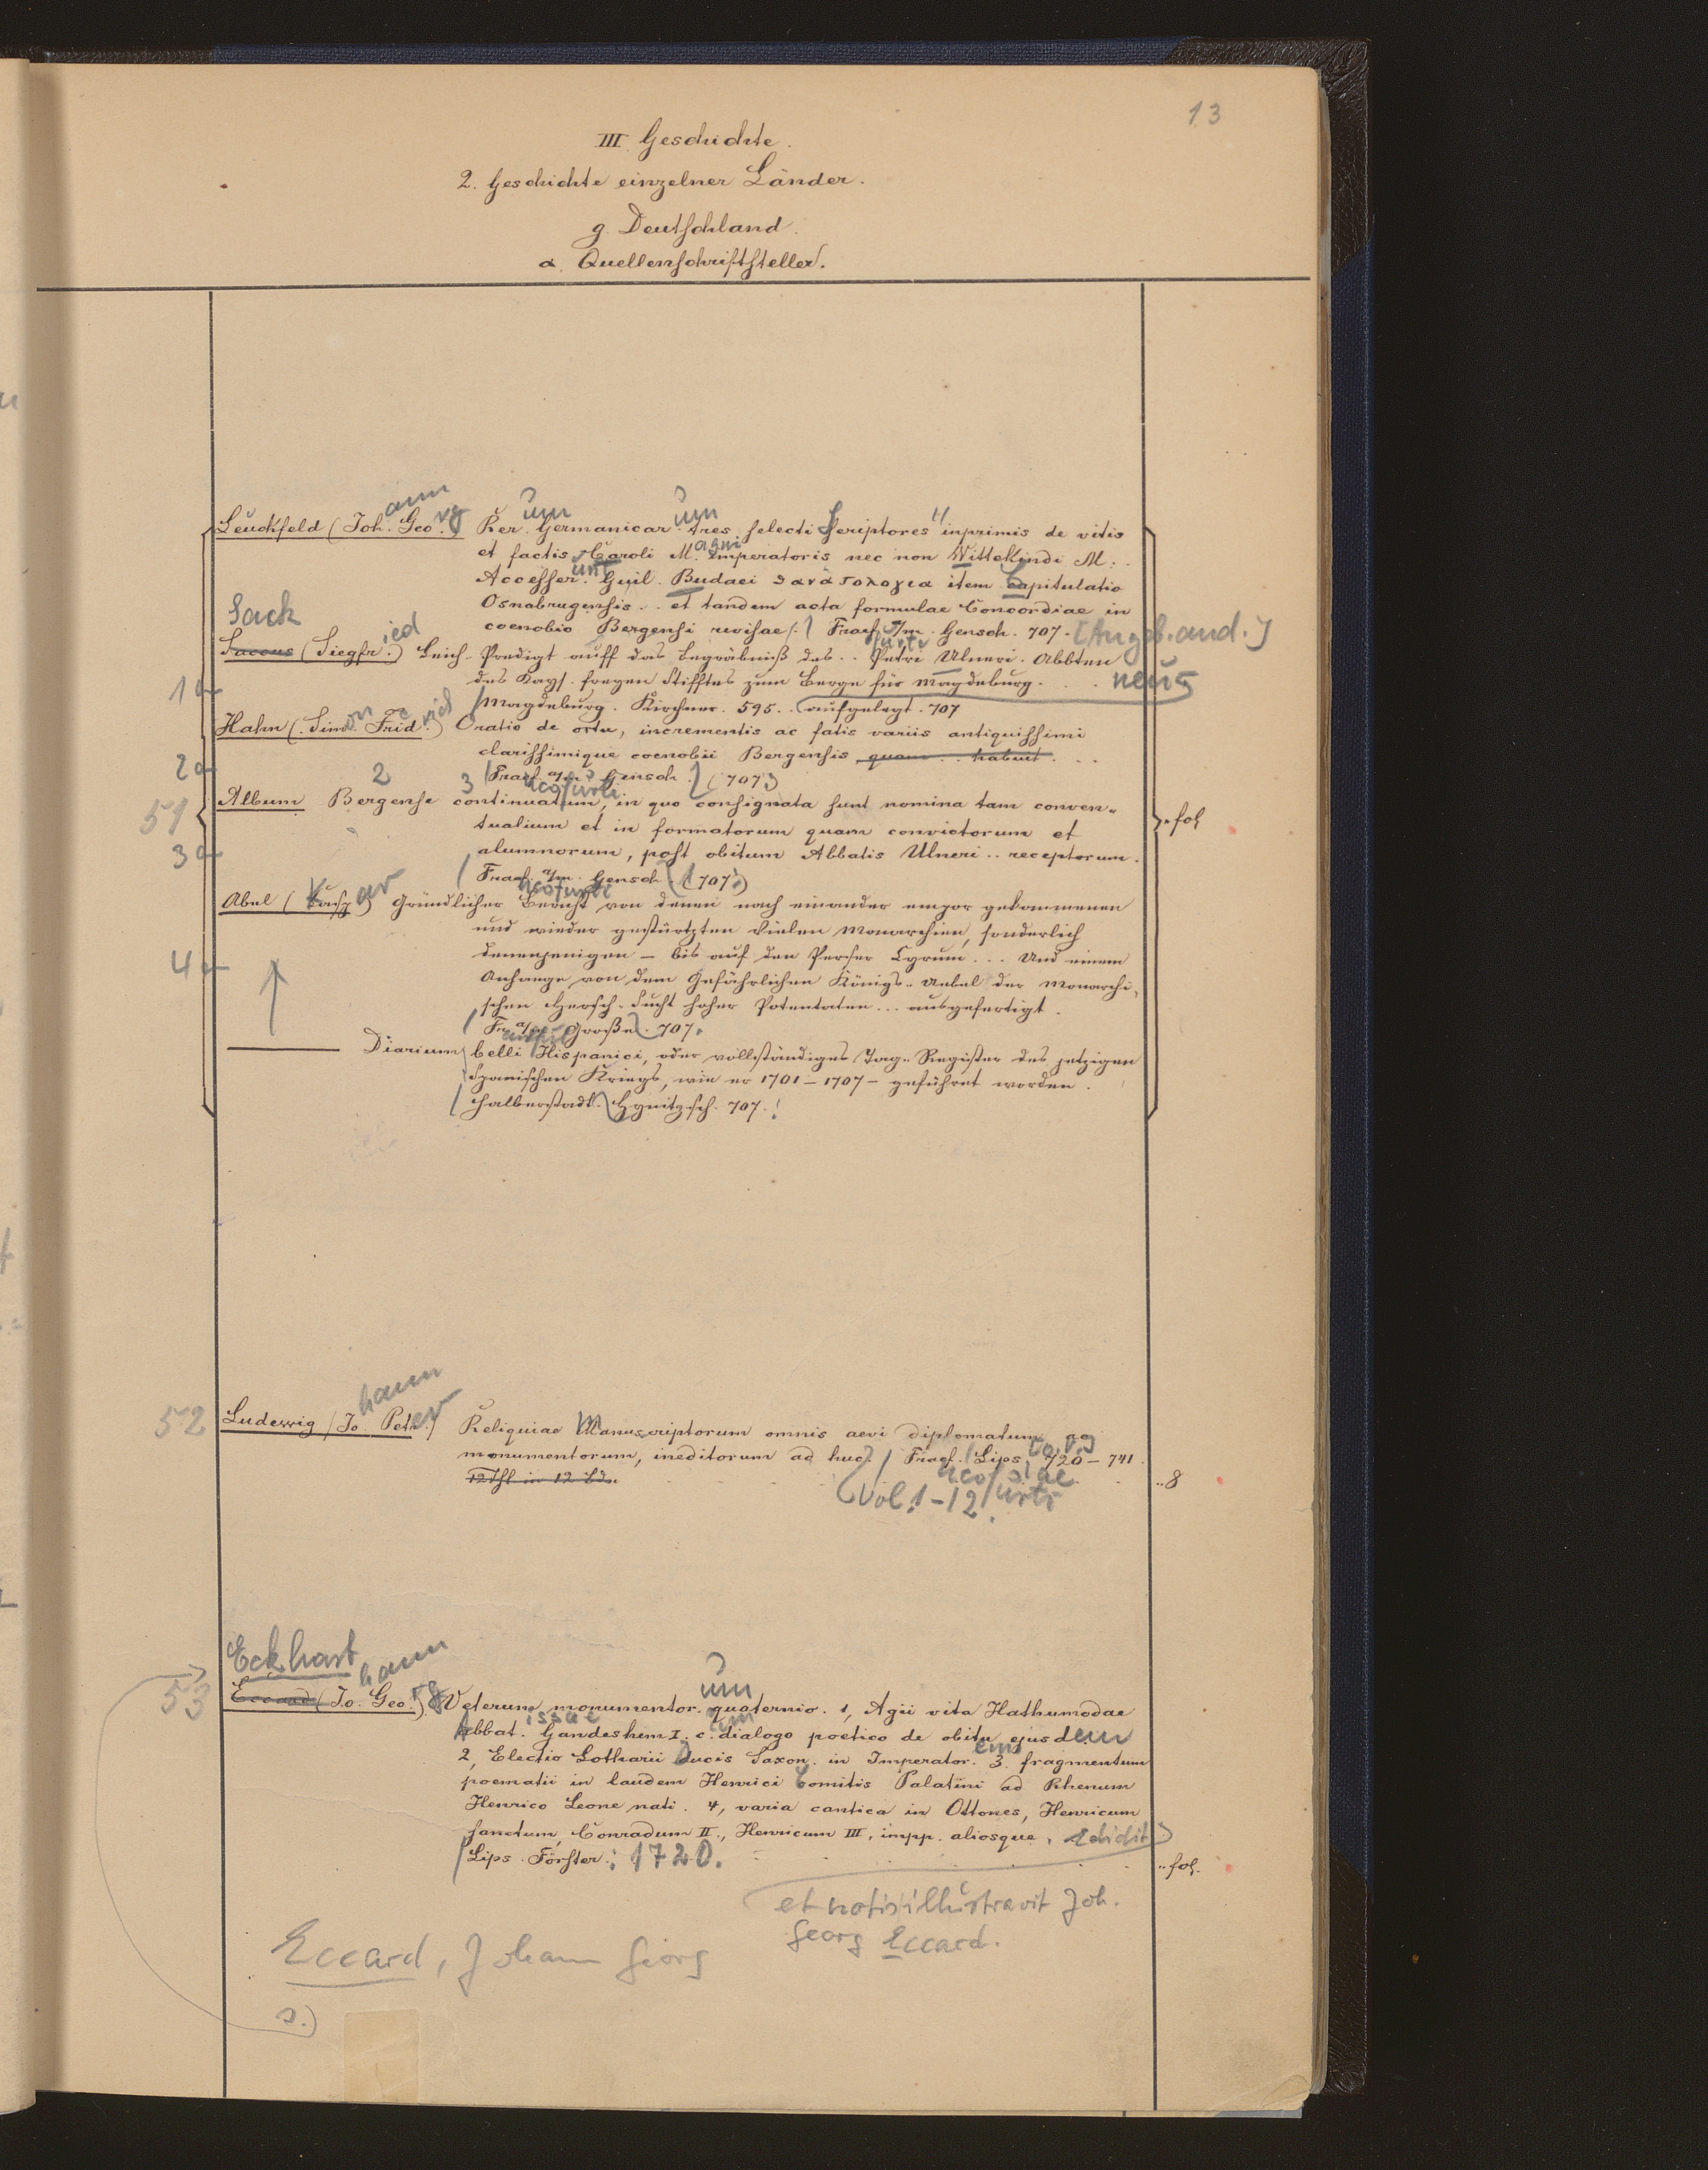 13
III Geschichte.
2. Geschichte einzelner Länder.
g. Deutschland.
α. Quellenschriftsteller.
Leuckfeld (Joh.ann Geo.rg) Rer.um Germanicar.um tres selecti Scriptores inprimis de vitis
et factis Caroli M.agni Imperatoris nec non WitteKindi M.
Accesser.unt Guil. Budaei θανάτολογια item Capitulatio
Osnabrugensis .. et tandem acta formulae Concordiae in
coenobio Bergensi revisae. Fracf. a/m. Gensch. 707. [Angeb. and.]
Sack
Saccus (Siegfr.ied) Leich-Predigt auff das Begräbniß des .. Petri Ulneri. Abbten
des Kays. freyen Stifftes zum Berge für Magdeburg. . . neu
1 Magdeburg. Kirchner. 595. .. aufgelegt. 707
Hahn (Simon Fried.rich) Oratio de ortu, incrementis ac fatis variis antiquissimi
clarissimique coenobii Bergensis quam .. habuit. ..
2 Fracf. a/m. Gensch. (707)
51 Album 2 Bergense 3 continuatum, in quo consignata sunt nomina tam conven-
tualium et in formatorum quam convictorum et
3 alumnorum, post obitum Abbatis Ulneri .. receptorum.
Fracf. a/m. Gensch. (707)
ncofurti
Abel (Caspar) Gründlicher Bericht von denen nach einander empor gekommenen
und wieder gestürtzten vielen Monarchien, sonderlich
4 denenjenigen – bis auf den Perser Cyrum ... Und einem
Anhange von dem gefährlichen Königs-Uebel der Monarchi-
schen Hersch-Sucht hoher Potentaten ... ausgefertigt.
Fr. a/m. Große. 707.
—— Diarium belli Hispanici, oder vollständiges Tag-Register des jetzigen
Spanischen Kriegs, wie er 1701 – 1707 – geführet worden.
Halberstadt. 707.
fol
52 Ludewig (Jo.hann Peter) Reliquiae Manuscriptorum omnis aevi diplomatum ac
monumentorum, ineditorum ad huc. Fracf. Lips. 720 – 741.
12 Thl in 12 Bdn.
ncofurti siae
Vol. 1-12.
8
Eckhart
53 Eccard (Jo.hann Geo.rg) Veterum monumentor.um quaternio. 1, Agii vita Hathumodae
Abbat.issae Gandeshem I. c.um dialogo poetico de obitu ejusdem
2, Electio Lotharii Ducis Saxon. in Imperator.em 3. fragmentum
poematii in laudem Henrici Comitis Palatini ad Rhenum
Henrico Leone nati. 4, varia cantica in Ottones, Henricum
sanctum, Conradum II., Henricum III, impp. aliosque. Edidit
Lips. Förster. 1720.
fol.
et notis illustravit Joh.
Georg Eccard.
Eccard, Johann Georg